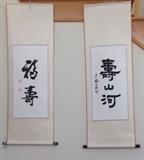 福壽
壽山河